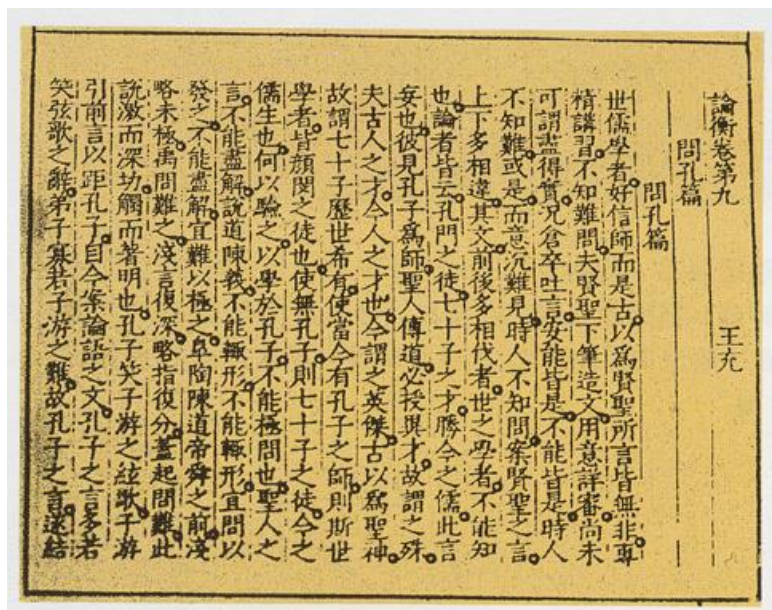 論衡卷第九 王充
問孔篇
問孔篇
世儒學者好信師而是古以爲賢聖所言皆無非專
精講習不知難問夫賢聖下筆造文用意詳審尚未
可謂盡得實况倉卒吐言安能皆是不能皆是時人
不知難或是而意沉難見時人不知問案賢聖之言
上下多相違其文前後多相伐者世之學者不能知
也論者皆云孔門之徒七十子之才勝今之儒此言
妄也彼見孔子爲師聖人傳道必授異才故謂之殊
夫古人之才今人之才也今謂之英傑古以爲聖神
故謂七十子歷世希有使當今有孔子之師則斯世
學者皆顏閔之徒也使無孔子則七十子之徒今之
儒生也何以驗之以學於孔子不能極問也聖人之
言不能盡解說道陳義不能輒形不能輒形宜問以
發之不能盡解宜難以極之臯陶陳道帝舜之前淺
略未極禹問難之淺言復深略指復分蓋起問難此
說激而深切觸而著明也孔子笑子游之絃歌子游
引前言以距孔子自今案論語之文孔子之言多若
笑弦歌之辭弟子寡若子游之難故孔子之言遂結